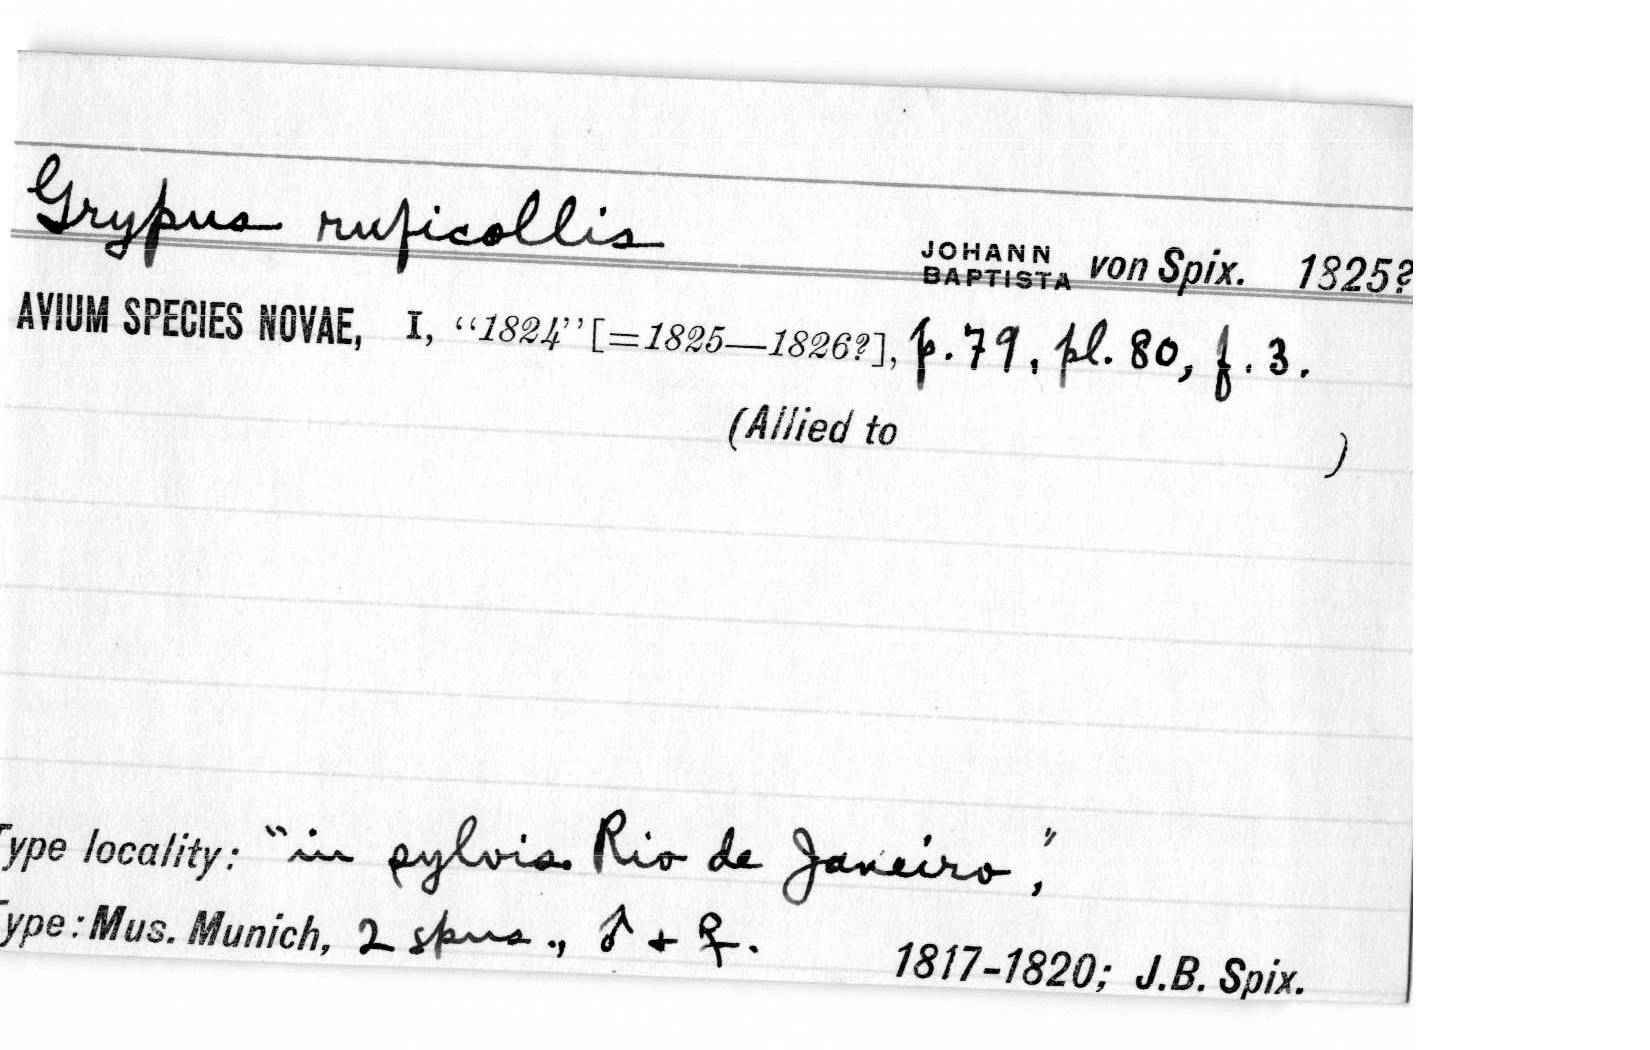 Grypus ruficollis
JOHANN BAPTISTA von Spix. 1825?
AVIUM SPECIES NOVAE, I, “1824” [=1825—1826?], p. 79, pl. 80, f. 3.
(Allied to )
Type locality: "in sylvis Rio de Janeiro,"
Type: Mus. Munich, 2 spns., ♂ + ♀. 1817-1820; J.B. Spix.